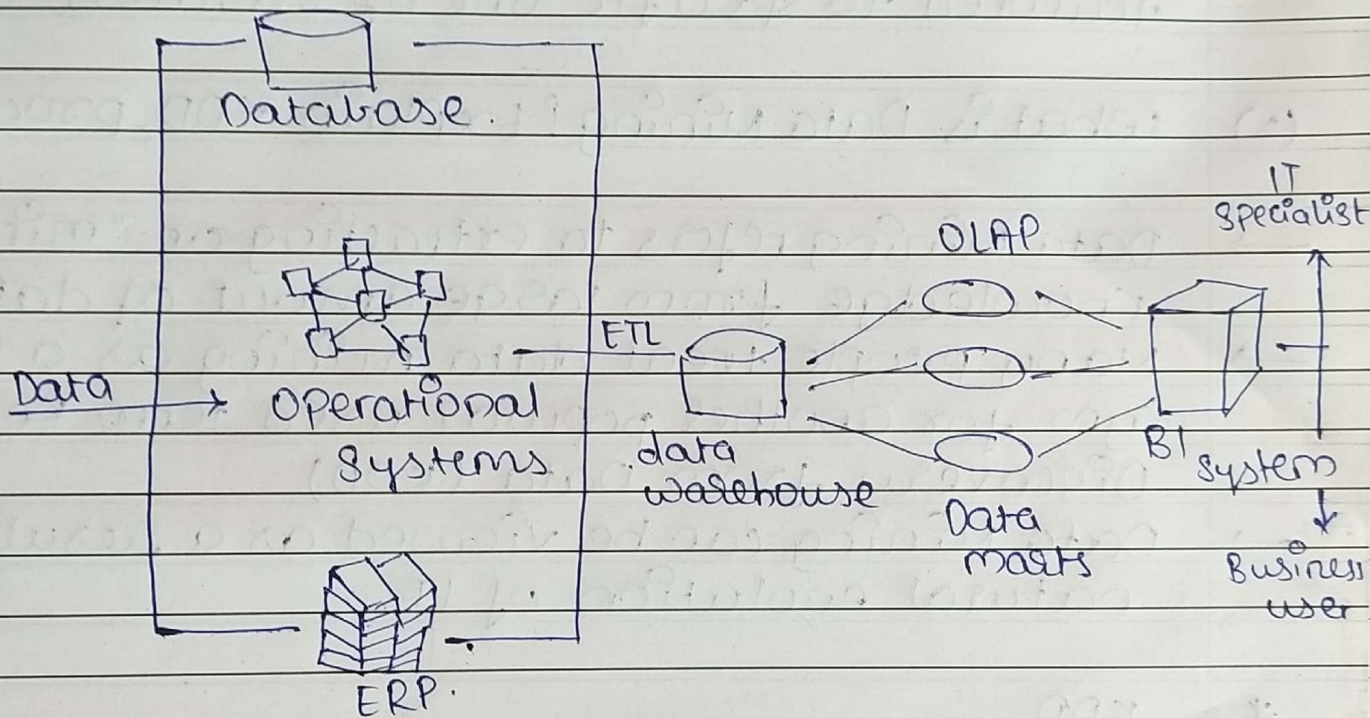 Database.
Data
Operational
Systems
ERP.
ETL
data
warehouse
OLAP
Data
marts
BI
System
IT
Specialist
Business
user